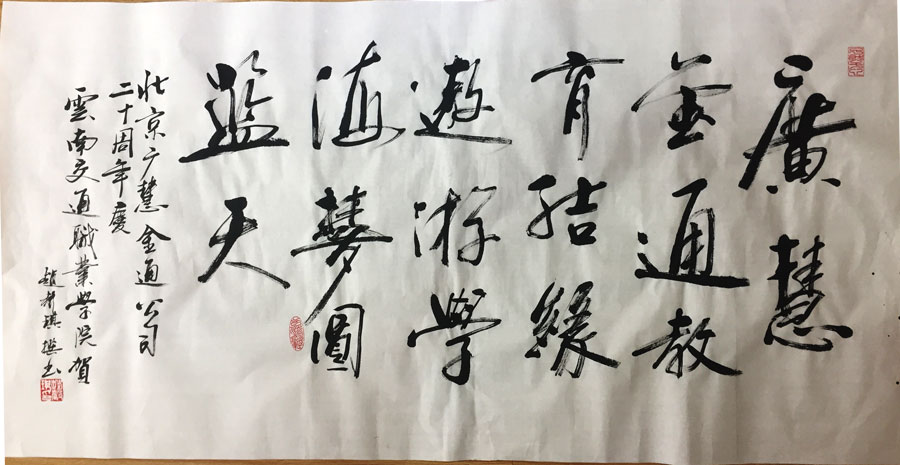 廣慧
金通教
育结緣
遨游學
海夢圓
蓝天
北京广慧金通公司
二十周年慶
雲南交通職業学院賀
趙琪撰书